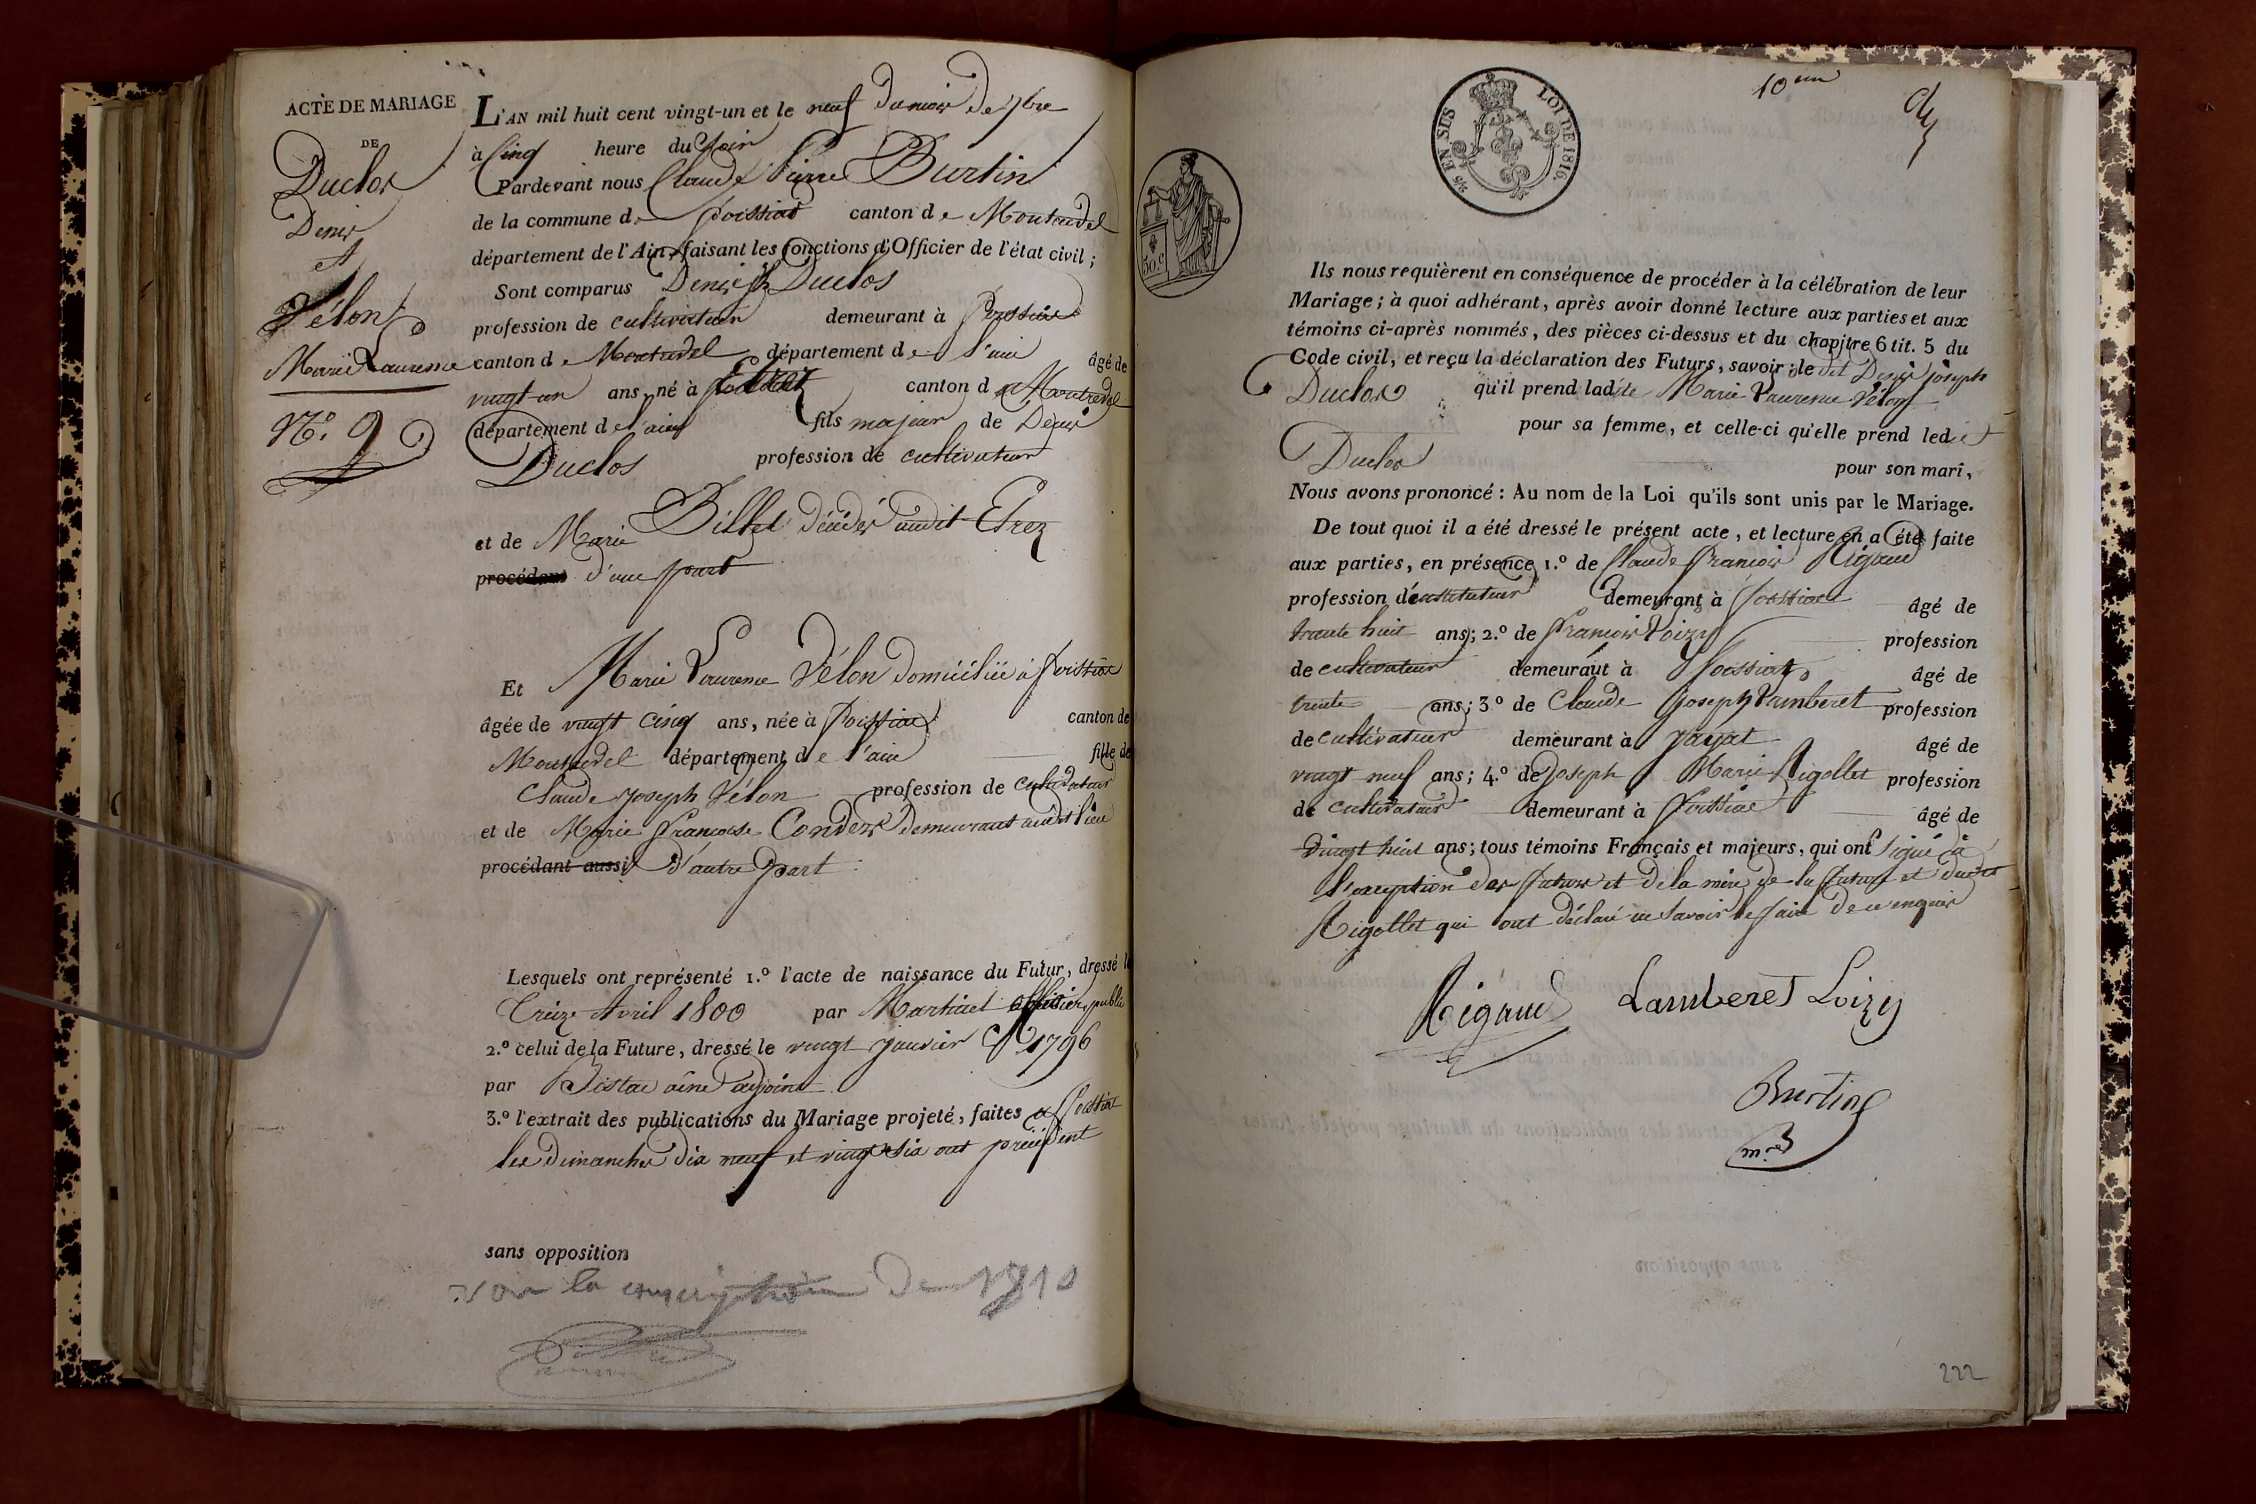 ACTE DE MARIAGE
DE
Duclos
Denis
et
Vélon
Marie Laurence
N.° 9
L'AN mil huit cent vingt-un et le neuf du mois de 7bre
à Cinq heure du Soir
Pardevant nous Claude Pierre Burtin
de la commune de foissiat canton de Montrevel
département de l'Ain, faisant les fonctions d'Officier de l'état civil;
Sont comparus Denis Jh Duclos
profession de cultivateur demeurant à foissiat
canton de Montrevel département de l'ain âgé de
vingt un ans, né à Etrez canton de Montrevel
département de l'ain fils majeur de Denis
Duclos profession de cultivateur
et de Marie Billet décédés audit Etrez
procédant d'une part
Et Marie Laurence Vélon domiciliée à foissiat
âgée de vingt cinq ans, née à foissiat canton de
Montrevel département de l'ain fille de
Claude joseph Vélon profession de cultivateur
et de Marie françoise demeurant audit lieu
procédant aussi d'autre part
Lesquels ont représenté 1.° l'acte de naissance du Futur, dressé le
Treize Avril 1800 par officier public
2.° celui de la Future, dressé le vingt janvier 1796
par aîné adjoint
3.° l'extrait des publications du Mariage projeté, faites à foissiat
les dimanches dix neuf et vingt six out précédent
sans opposition
voir la conscription de
10 em
Ils nous requièrent en conséquence de procéder à la célébration de leur
Mariage; à quoi adhérant, après avoir donné lecture aux parties et aux
témoins ci-après nommés, des pièces ci-dessus et du chapitre 6 tit. 5 du
Code civil, et reçu la déclaration des Futurs, savoir: le dit Denis joseph
Duclos qu'il prend ladite Marie Laurence Vélon
pour sa femme, et celle-ci qu'elle prend ledit
Duclos pour son mari,
Nous avons prononcé: Au nom de la Loi qu'ils sont unis par le Mariage.
De tout quoi il a été dressé le présent acte, et lecture en a été faite
aux parties, en présence 1.° de Claude françois Rigaud
profession d'instituteur demeurant à foissiat âgé de
trente huit ans; 2.° de françois Loizy profession
de cultivateur demeurant à foissiat âgé de
trente ans; 3.° de Claude joseph Lamberet profession
de cultivateur demeurant à jayat âgé de
vingt neuf ans; 4.° de joseph Marie Rigollet profession
de cultivateur demeurant à foissiat âgé de
vingt huit ans; tous témoins Français et majeurs, qui ont signé à
l'exception des futurs et de la mère de la future et dudit
Rigollet qui ont déclaré ne savoir le faire de ce enquis
Rigaud Lamberet Loizy
Burtin
m.re
5/5 EN SUS
LOI DE 1816.
50.c
222